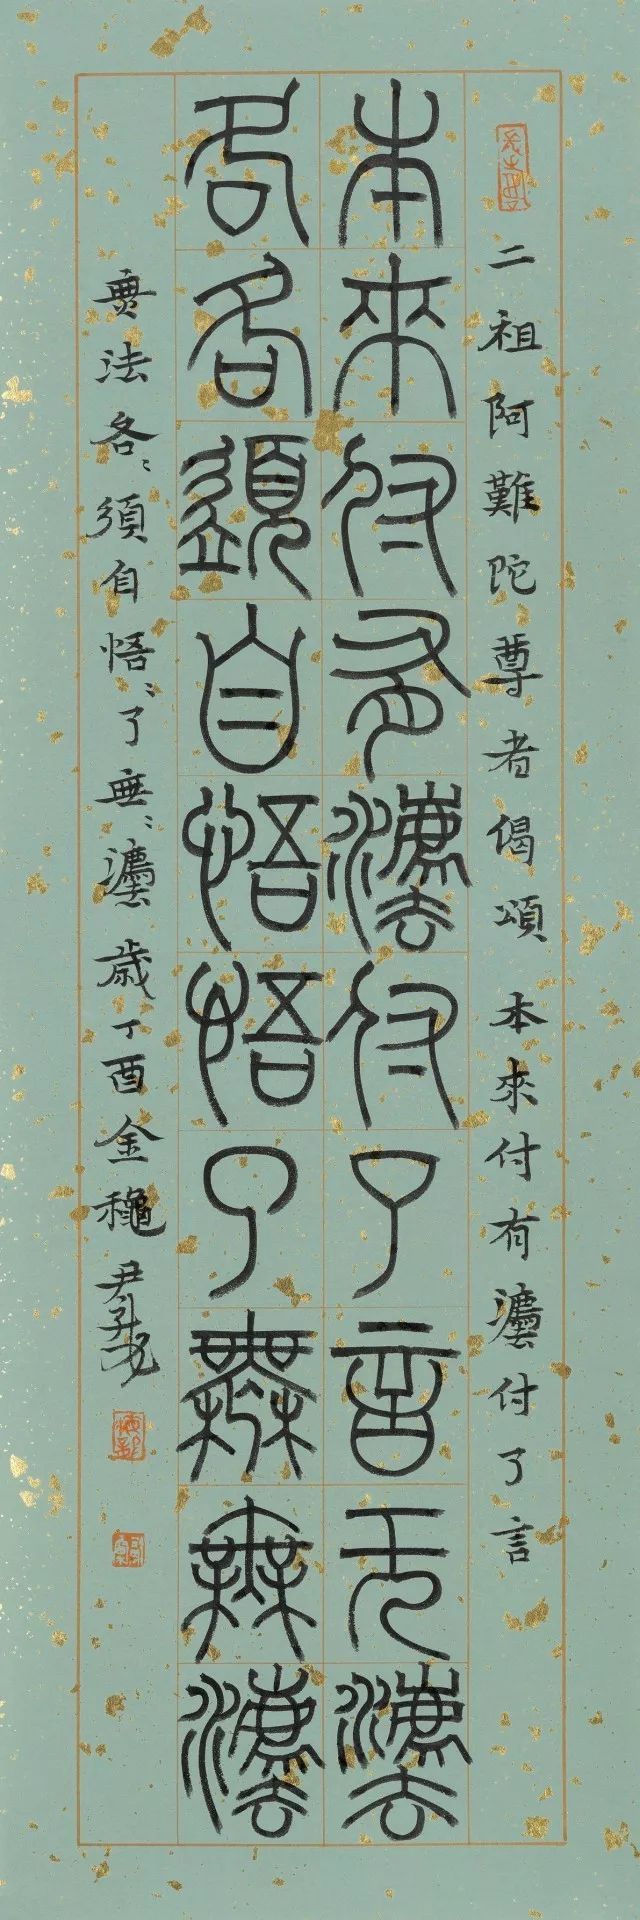 二祖阿難陀尊者偈頌 本來付有灋付了言
本來付有灋付了言无灋
各各須自悟悟了無無灋
無法各〻須自悟〻了無〻灋歲丁酉金龝